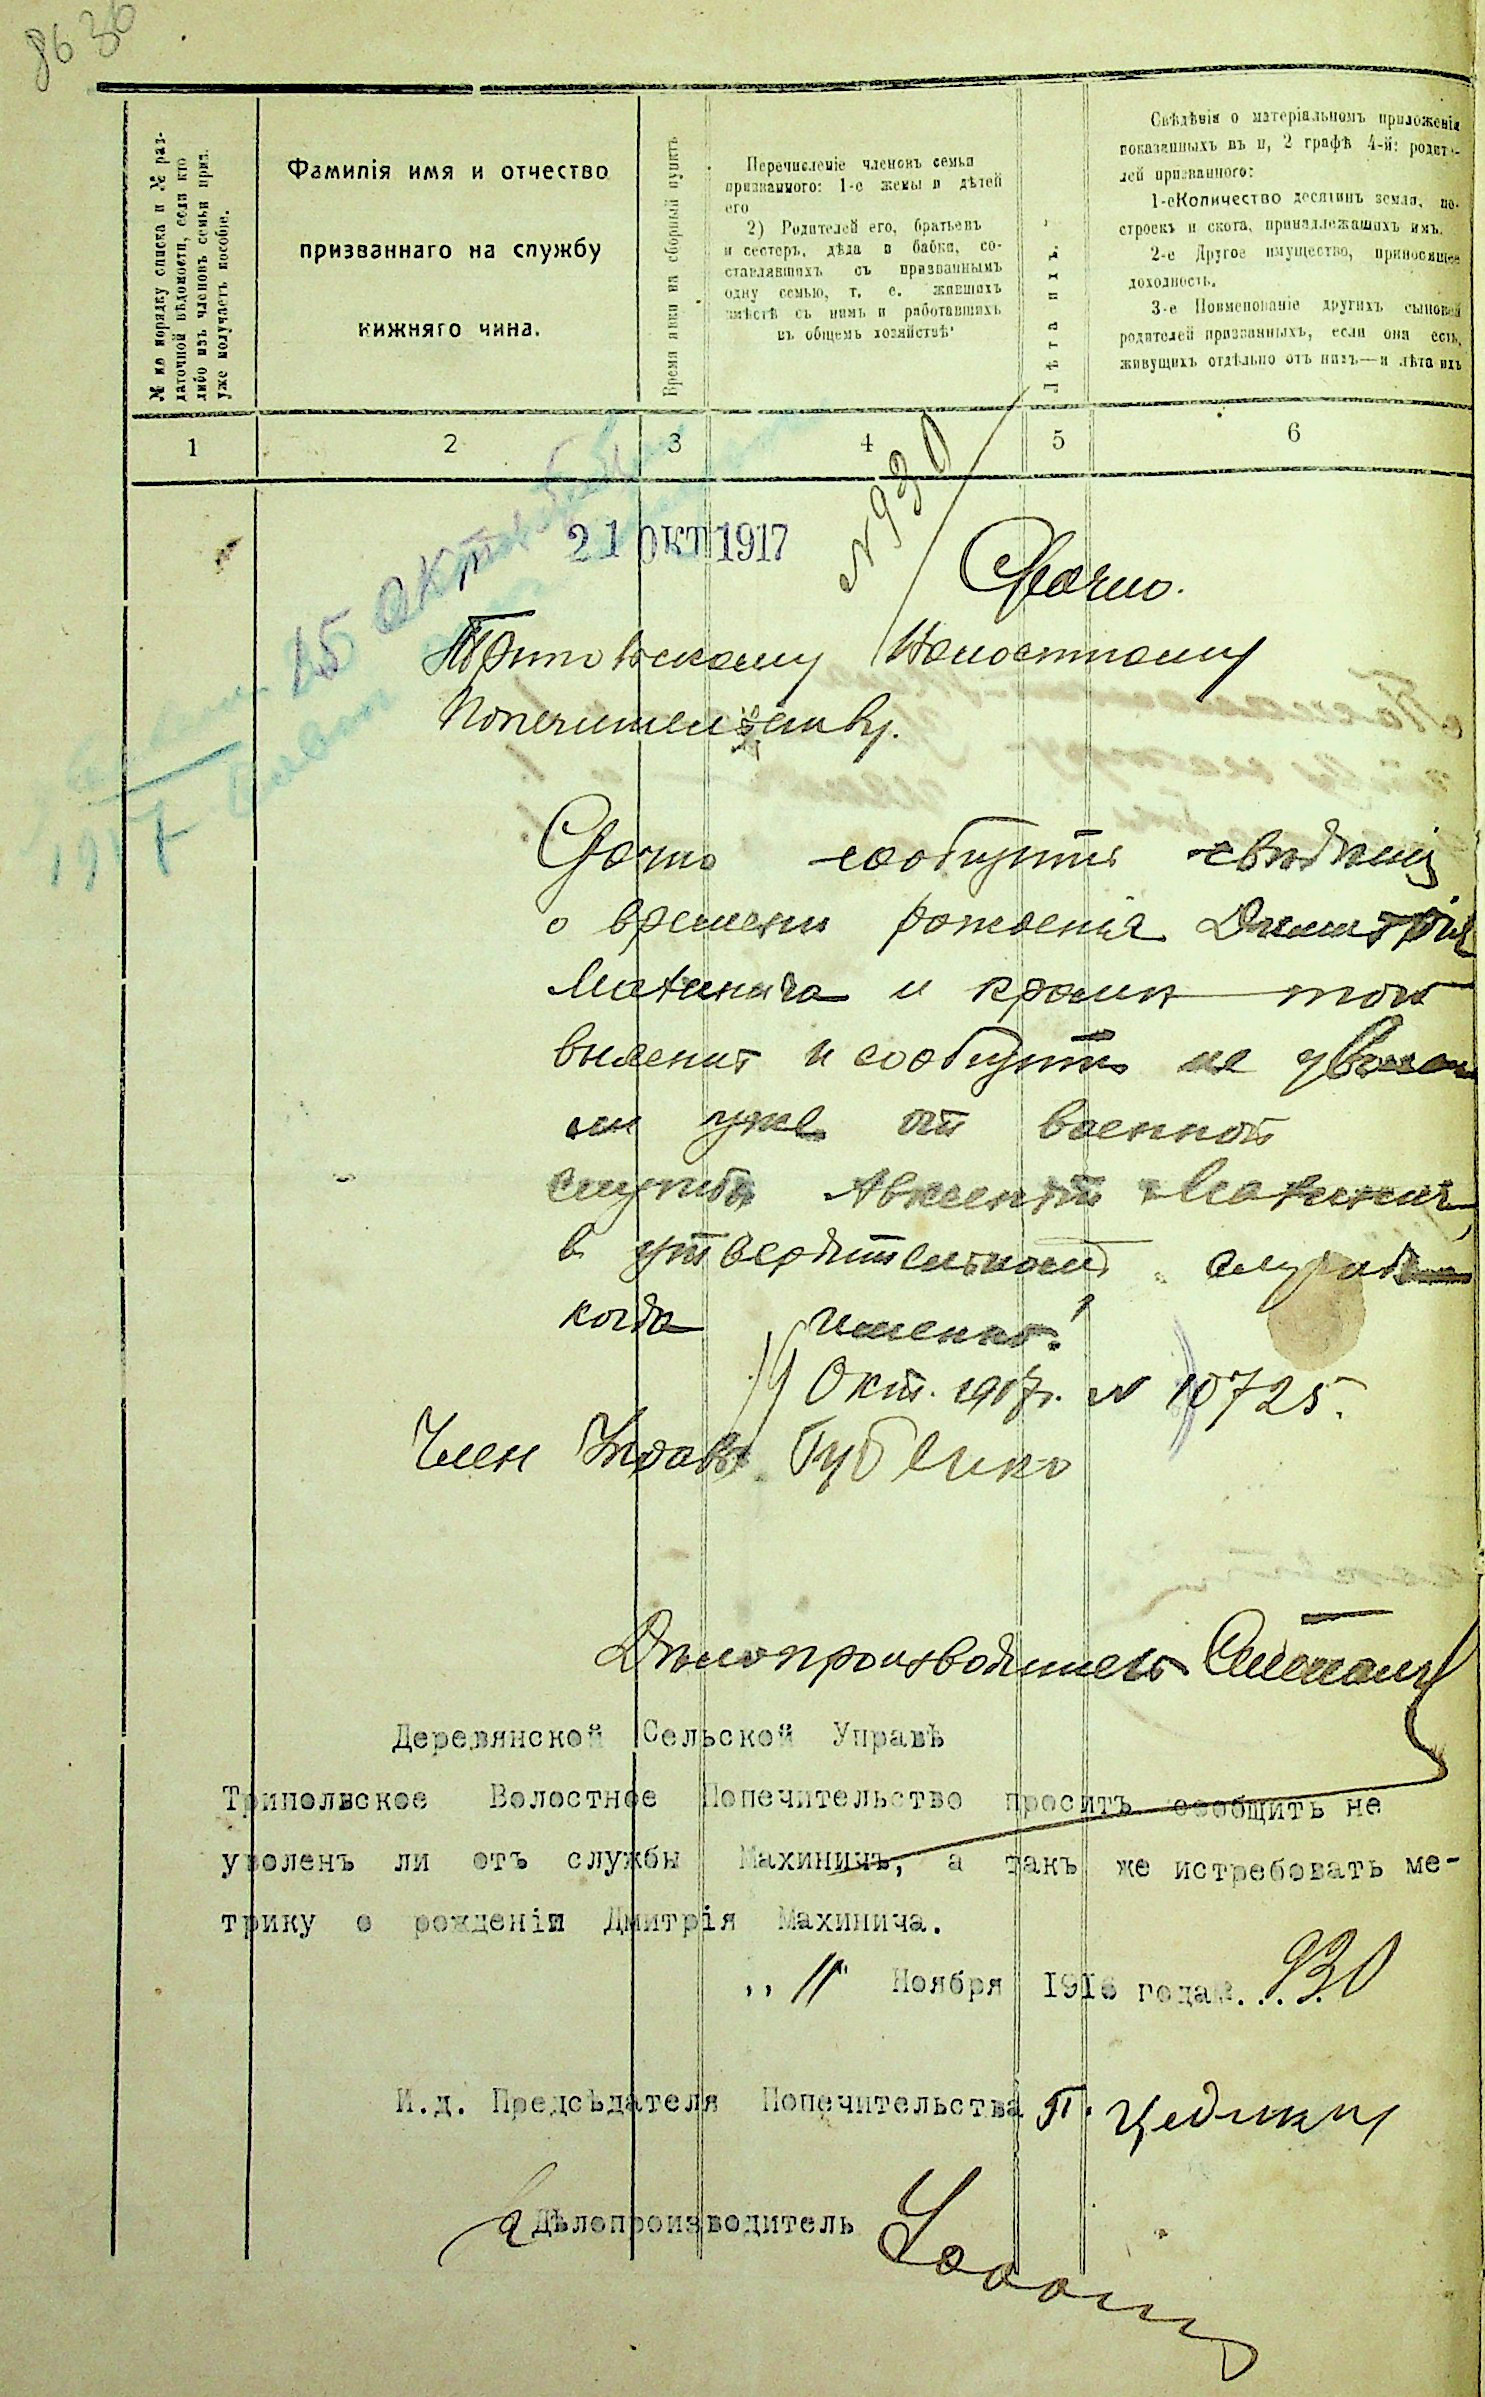 8636
№ по порядку списка и № раз-
даточной вѣдомости, если кто
либо изъ членовъ семьи приз.
уже получаетъ пособіе.
Фамилія имя и отчество
призваннаго на службу
нижняго чина.
Время явки на сборный пунктъ
Перечисленіе членовъ семьи
призванного: 1-е жены и дѣтей
его
2) Родителей его, братьевъ
и сестеръ, дѣда и бабки, со-
ставлявшихъ съ призваннымъ
одну семью, т. е. жившихъ
вмѣстѣ съ нимъ и работавшихъ
въ общемъ хозяйствѣ
Лѣта ихъ.
Свѣдѣнія о матеріальномъ приложенія
показанныхъ въ п, 2 графѣ 4-й: родите-
лей призванного:
1-е Количество десятинъ земли, по-
строекъ и скота, принадлежащихъ имъ.
2-е Другое имущество, приносящее
доходность.
3-е Поименованіе другихъ сыновей
родителей призванныхъ, если они есть,
живущихъ отдѣльно отъ нихъ—и лѣта ихъ
1 2 3 4 5 6
N 930
21 ОКТ 1917
25 октября
1917
Срочно.
Волостному
Попечительству.
Срочно сообщить свѣдѣнія
о времени рожденія Димитрія
Махинича и кромѣ того
выяснить и сообщить не уволен
ли уже от военной
службы Авксентій Махинич,
в утвердительном случаѣ
когда именно?
19 Окт. 1917 г. N 10725.
Член Управы Губенко
Дѣлопроизводитель
Деревянской Сельской Управѣ
Трипольское Волостное Попечительство проситъ сообщить не
уволенъ ли отъ службы Махиничъ, а такъ же истребовать ме-
трику о рожденіи Дмитрія Махинича.
„ 11 " Ноября 1916 года №. . . 930
И.д. Предсѣдателя Попечительства П.
Дѣлопроизводитель